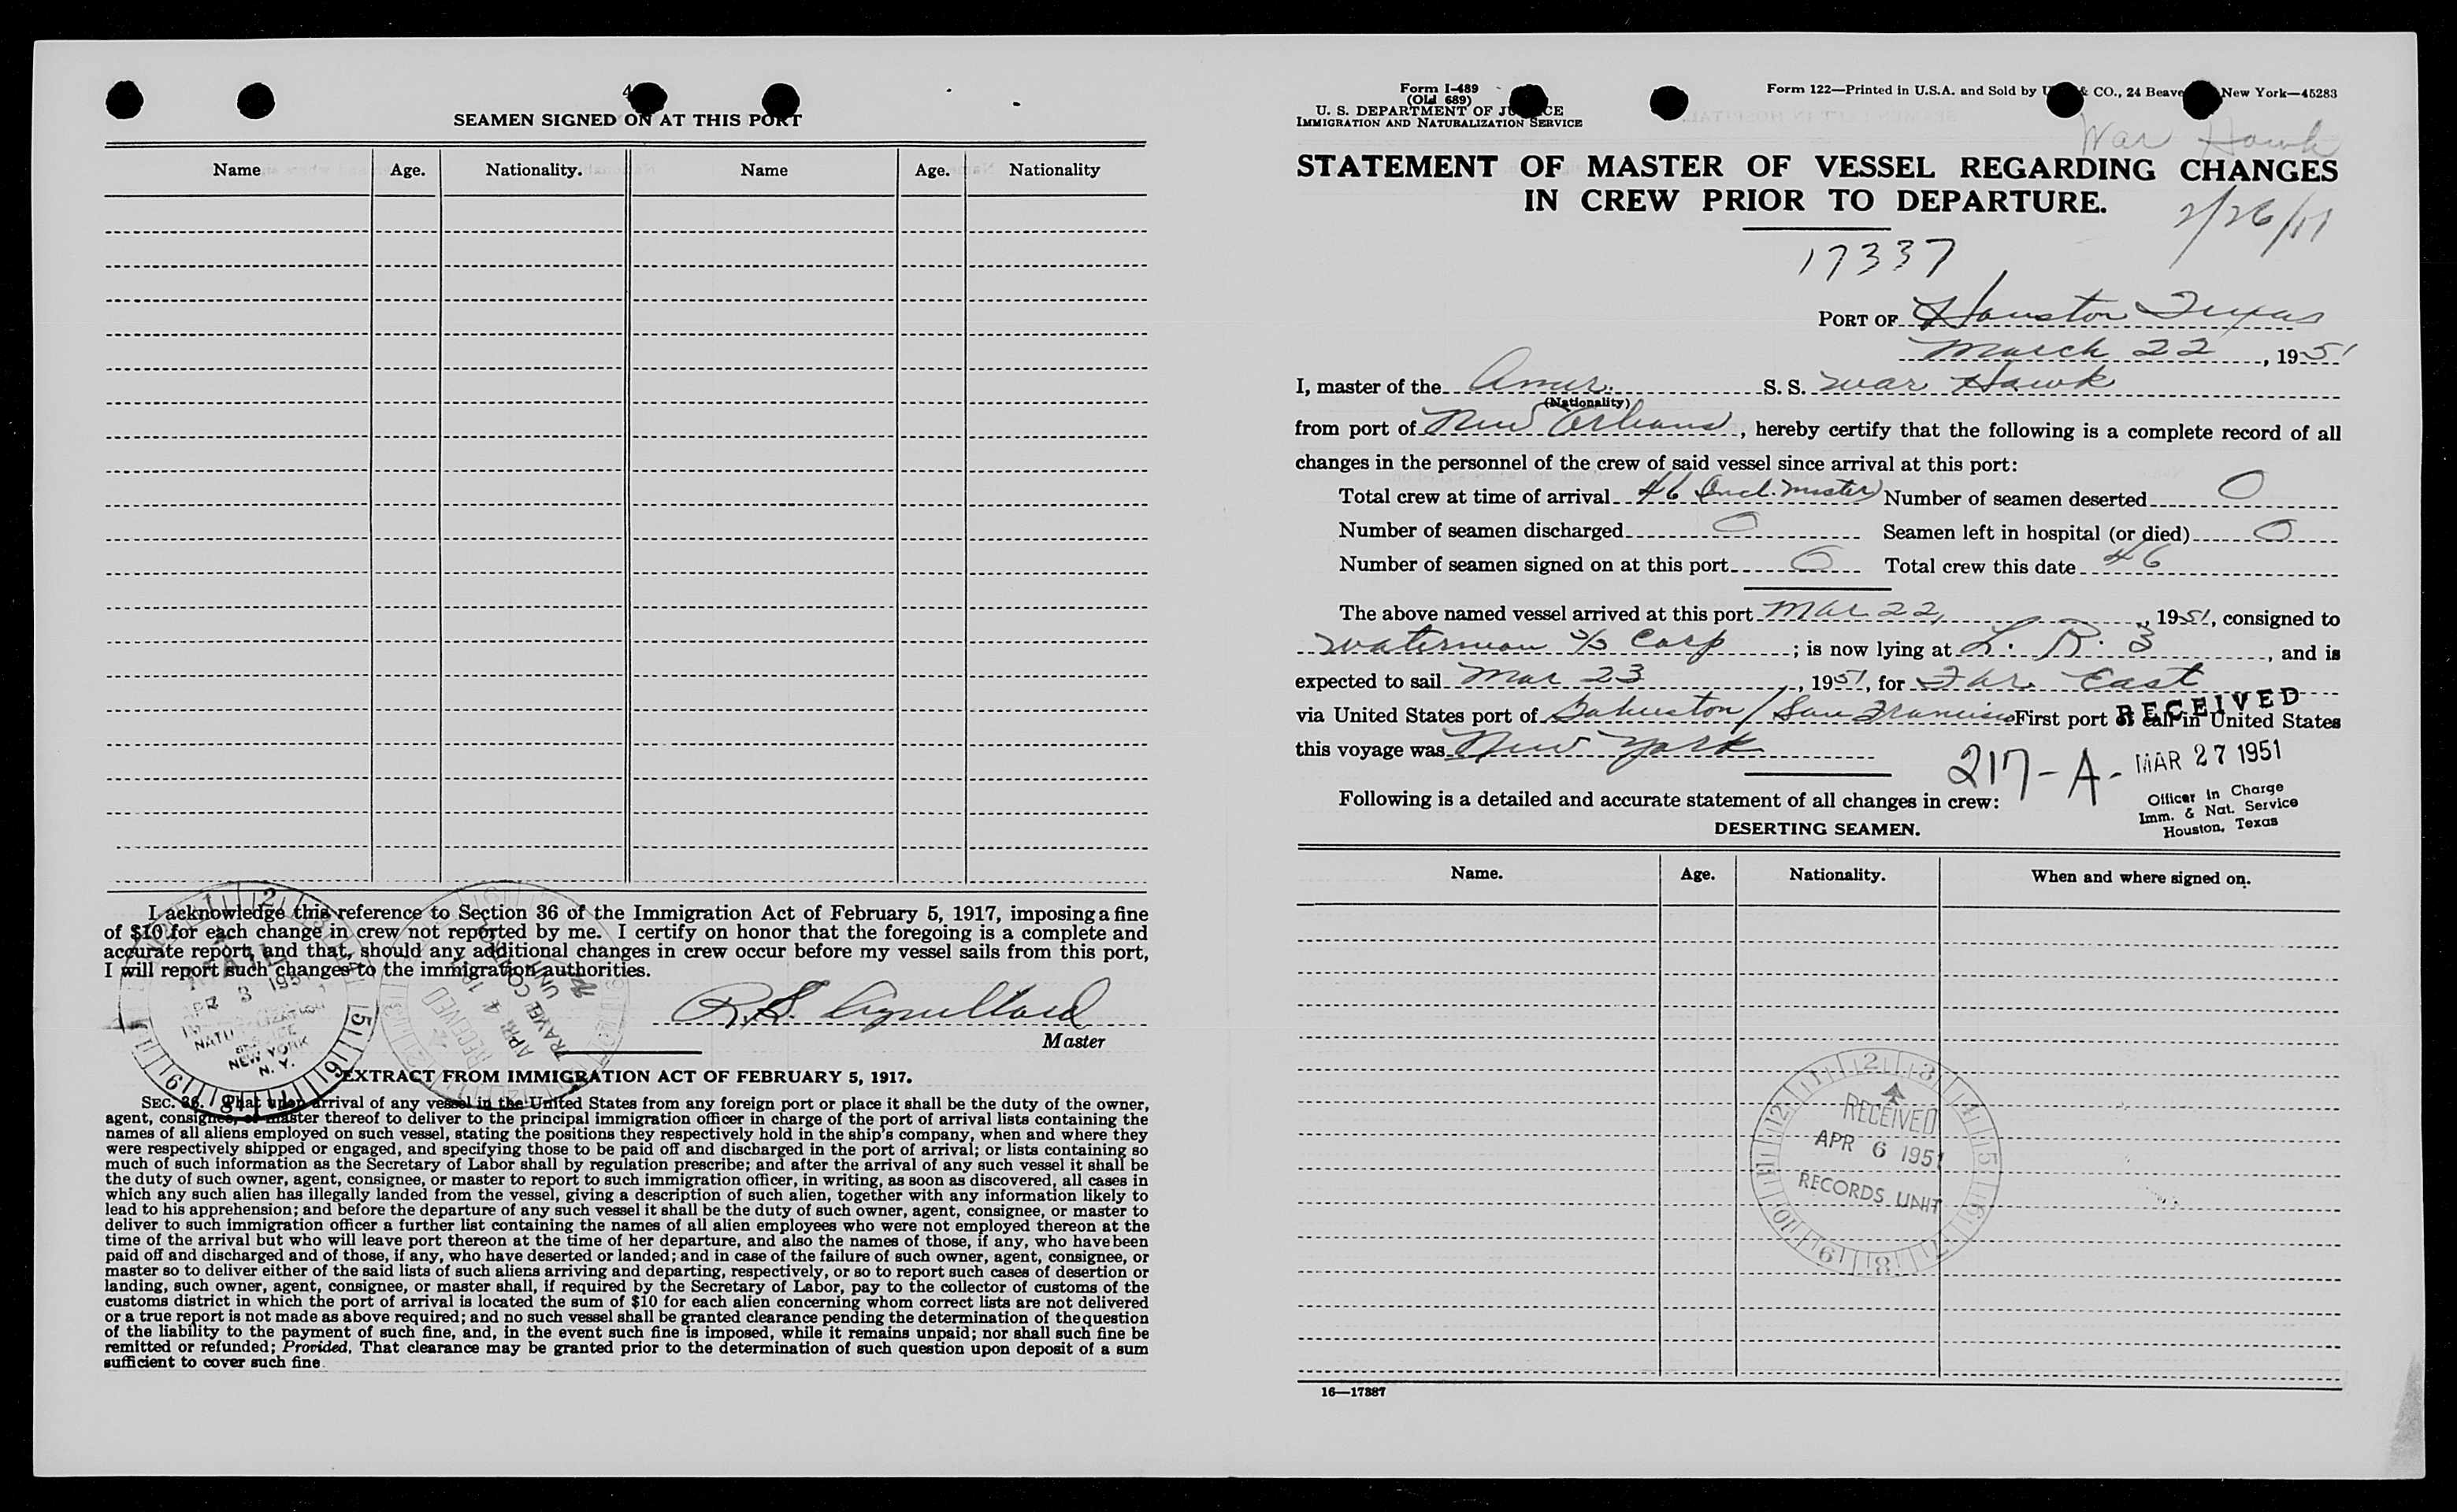 4
SEAMEN SIGNED ON AT THIS PORT
Name Age. Nationality. Name Age. Nationality
I acknowledge this reference to Section 36 of the Immigration Act of February 5, 1917, imposing a fine
of $10 for each change in crew not reported by me. I certify on honor that the foregoing is a complete and
accurate report, and that, should any additional changes in crew occur before my vessel sails from this port,
I will report such changes to the immigration authorities.
MAIL
3 195
NEW YORK
N. Y.
RECEIVED
APR 4 19
TRAVEL CO
UN
R. S.
Master
EXTRACT FROM IMMIGRATION ACT OF FEBRUARY 5, 1917.
SEC. 36. That upon arrival of any vessel in the United States from any foreign port or place it shall be the duty of the owner,
agent, consignee, or master thereof to deliver to the principal immigration officer in charge of the port of arrival lists containing the
names of all aliens employed on such vessel, stating the positions they respectively hold in the ship's company, when and where they
were respectively shipped or engaged, and specifying those to be paid off and discharged in the port of arrival; or lists containing so
much of such information as the Secretary of Labor shall by regulation prescribe; and after the arrival of any such vessel it shall be
the duty of such owner, agent, consignee, or master to report to such immigration officer, in writing, as soon as discovered, all cases in
which any such alien has illegally landed from the vessel, giving a description of such alien, together with any information likely to
lead to his apprehension; and before the departure of any such vessel it shall be the duty of such owner, agent, consignee, or master to
deliver to such immigration officer a further list containing the names of all alien employees who were not employed thereon at the
time of the arrival but who will leave port thereon at the time of her departure, and also the names of those, if any, who have been
paid off and discharged and of those, if any, who have deserted or landed; and in case of the failure of such owner, agent, consignee, or
master so to deliver either of the said lists of such aliens arriving and departing, respectively, or so to report such cases of desertion or
landing, such owner, agent, consignee, or master shall, if required by the Secretary of Labor, pay to the collector of customs of the
customs district in which the port of arrival is located the sum of $10 for each alien concerning whom correct lists are not delivered
or a true report is not made as above required; and no such vessel shall be granted clearance pending the determination of the question
of the liability to the payment of such fine, and, in the event such fine is imposed, while it remains unpaid; nor shall such fine be
remitted or refunded; Provided, That clearance may be granted prior to the determination of such question upon deposit of a sum
sufficient to cover such fine.
Form I-489
(Old 689)
U. S. DEPARTMENT OF JUSTICE
IMMIGRATION AND NATURALIZATION SERVICE
Form 122—Printed in U.S.A. and Sold by & CO., 24 Beave New York—45283
War Hawk
STATEMENT OF MASTER OF VESSEL REGARDING CHANGES
IN CREW PRIOR TO DEPARTURE.
2/26/51
17337
PORT OF Houston Texas
March 22, 1951
I, master of the Amer. S. S. War Hawk
(Nationality)
from port of New Orleans, hereby certify that the following is a complete record of all
changes in the personnel of the crew of said vessel since arrival at this port:
Total crew at time of arrival 46 Incl. Master Number of seamen deserted 0
Number of seamen discharged 0 Seamen left in hospital (or died) 0
Number of seamen signed on at this port 0 Total crew this date 46
The above named vessel arrived at this port Mar 22, 1951, consigned to
Waterman S/S Corp; is now lying at L. R. 3, and is
expected to sail Mar 23, 1951, for Far East
via United States port of Galveston / San Francisco First port of call in United States
this voyage was New York
RECEIVED
MAR 27 1951
Officer in Charge
Imm. & Nat. Service
Houston, Texas
217-A-
Following is a detailed and accurate statement of all changes in crew:
DESERTING SEAMEN.
Name. Age. Nationality. When and where signed on.
RECEIVED
APR 6 1951
RECORDS UNIT
16—17887